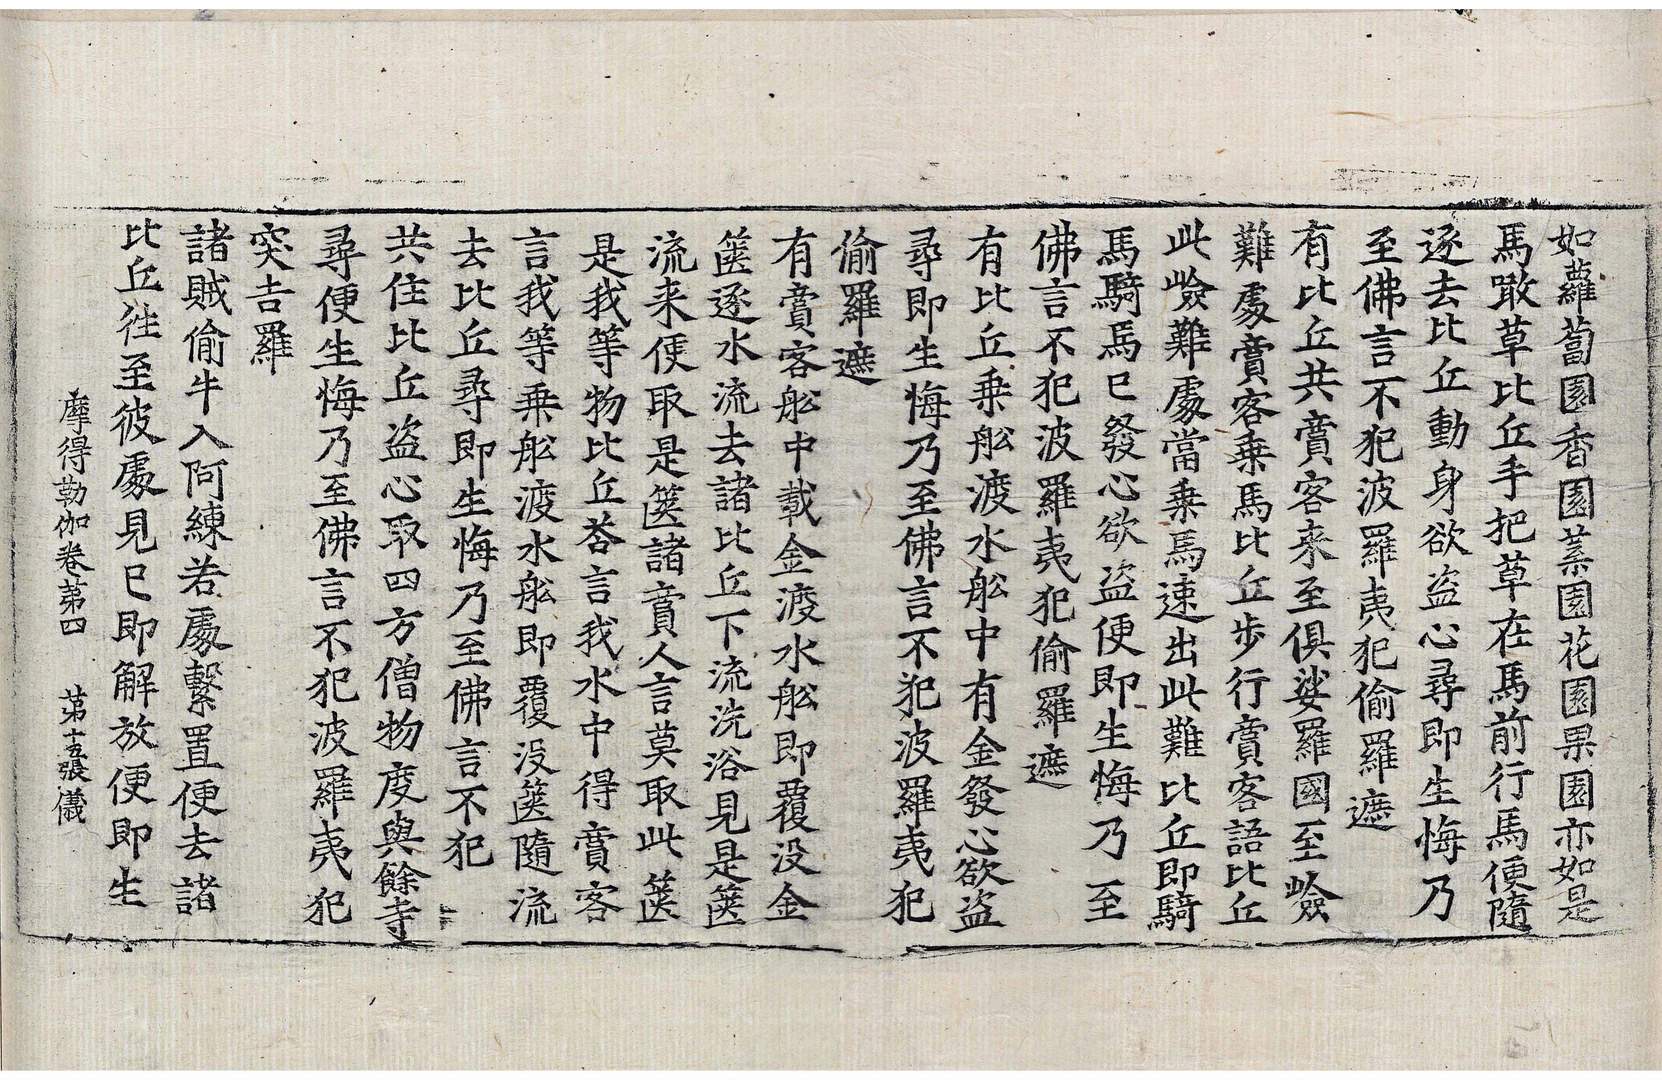 如蘿蔔園香園菜園花園果園亦如是
馬噉草比丘手把草在馬前行馬便隨
逐去比丘動身欲盗心尋即生悔乃
至佛言不犯波羅夷犯偷羅遮
有比丘共賔客来至俱娑羅國至嶮
難處賔客乗馬比丘步行賔客語比丘
此嶮難處當乗馬速出此難比丘即騎
馬騎馬已發心欲盗便即生悔乃至
佛言不犯波羅夷犯偷羅遮
有比丘乗舩渡水舩中有金發心欲盗
尋即生悔乃至佛言不犯波羅夷犯
偷羅遮
有賔客舩中載金渡水舩即覆没金
篋逐水流去諸比丘下流洗浴見是篋
流来便取是篋諸賔人言莫取此篋
是我等物比丘荅言我水中得賔客
言我等乗舩渡水舩即覆没篋隨流
去比丘尋即生悔乃至佛言不犯
共住比丘盗心取四方僧物度與餘寺
尋便生悔乃至佛言不犯波羅夷犯
突吉羅
諸賊偷牛入阿練若處繫置便去諸
比丘徃至彼處見已即解放便即生
摩得勒伽卷第四　第十五張儀